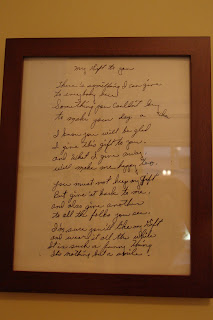 My Gift to you
There is something I can give
to everybody here
Something you couldn't buy
to make your day a
I know you will be glad
I give this gift to you.
and what I give
will make me happy, too.
You must not keep my gift
But give it back to me.
and also give another
to all the folks you see.
I'm sure you'd like my Gift
and wear it all the while
It is such a funny thing
Its nothing but a smile!